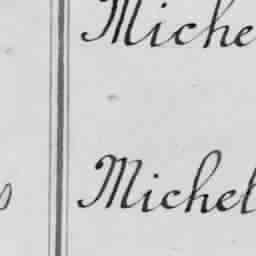 Miche
Michel